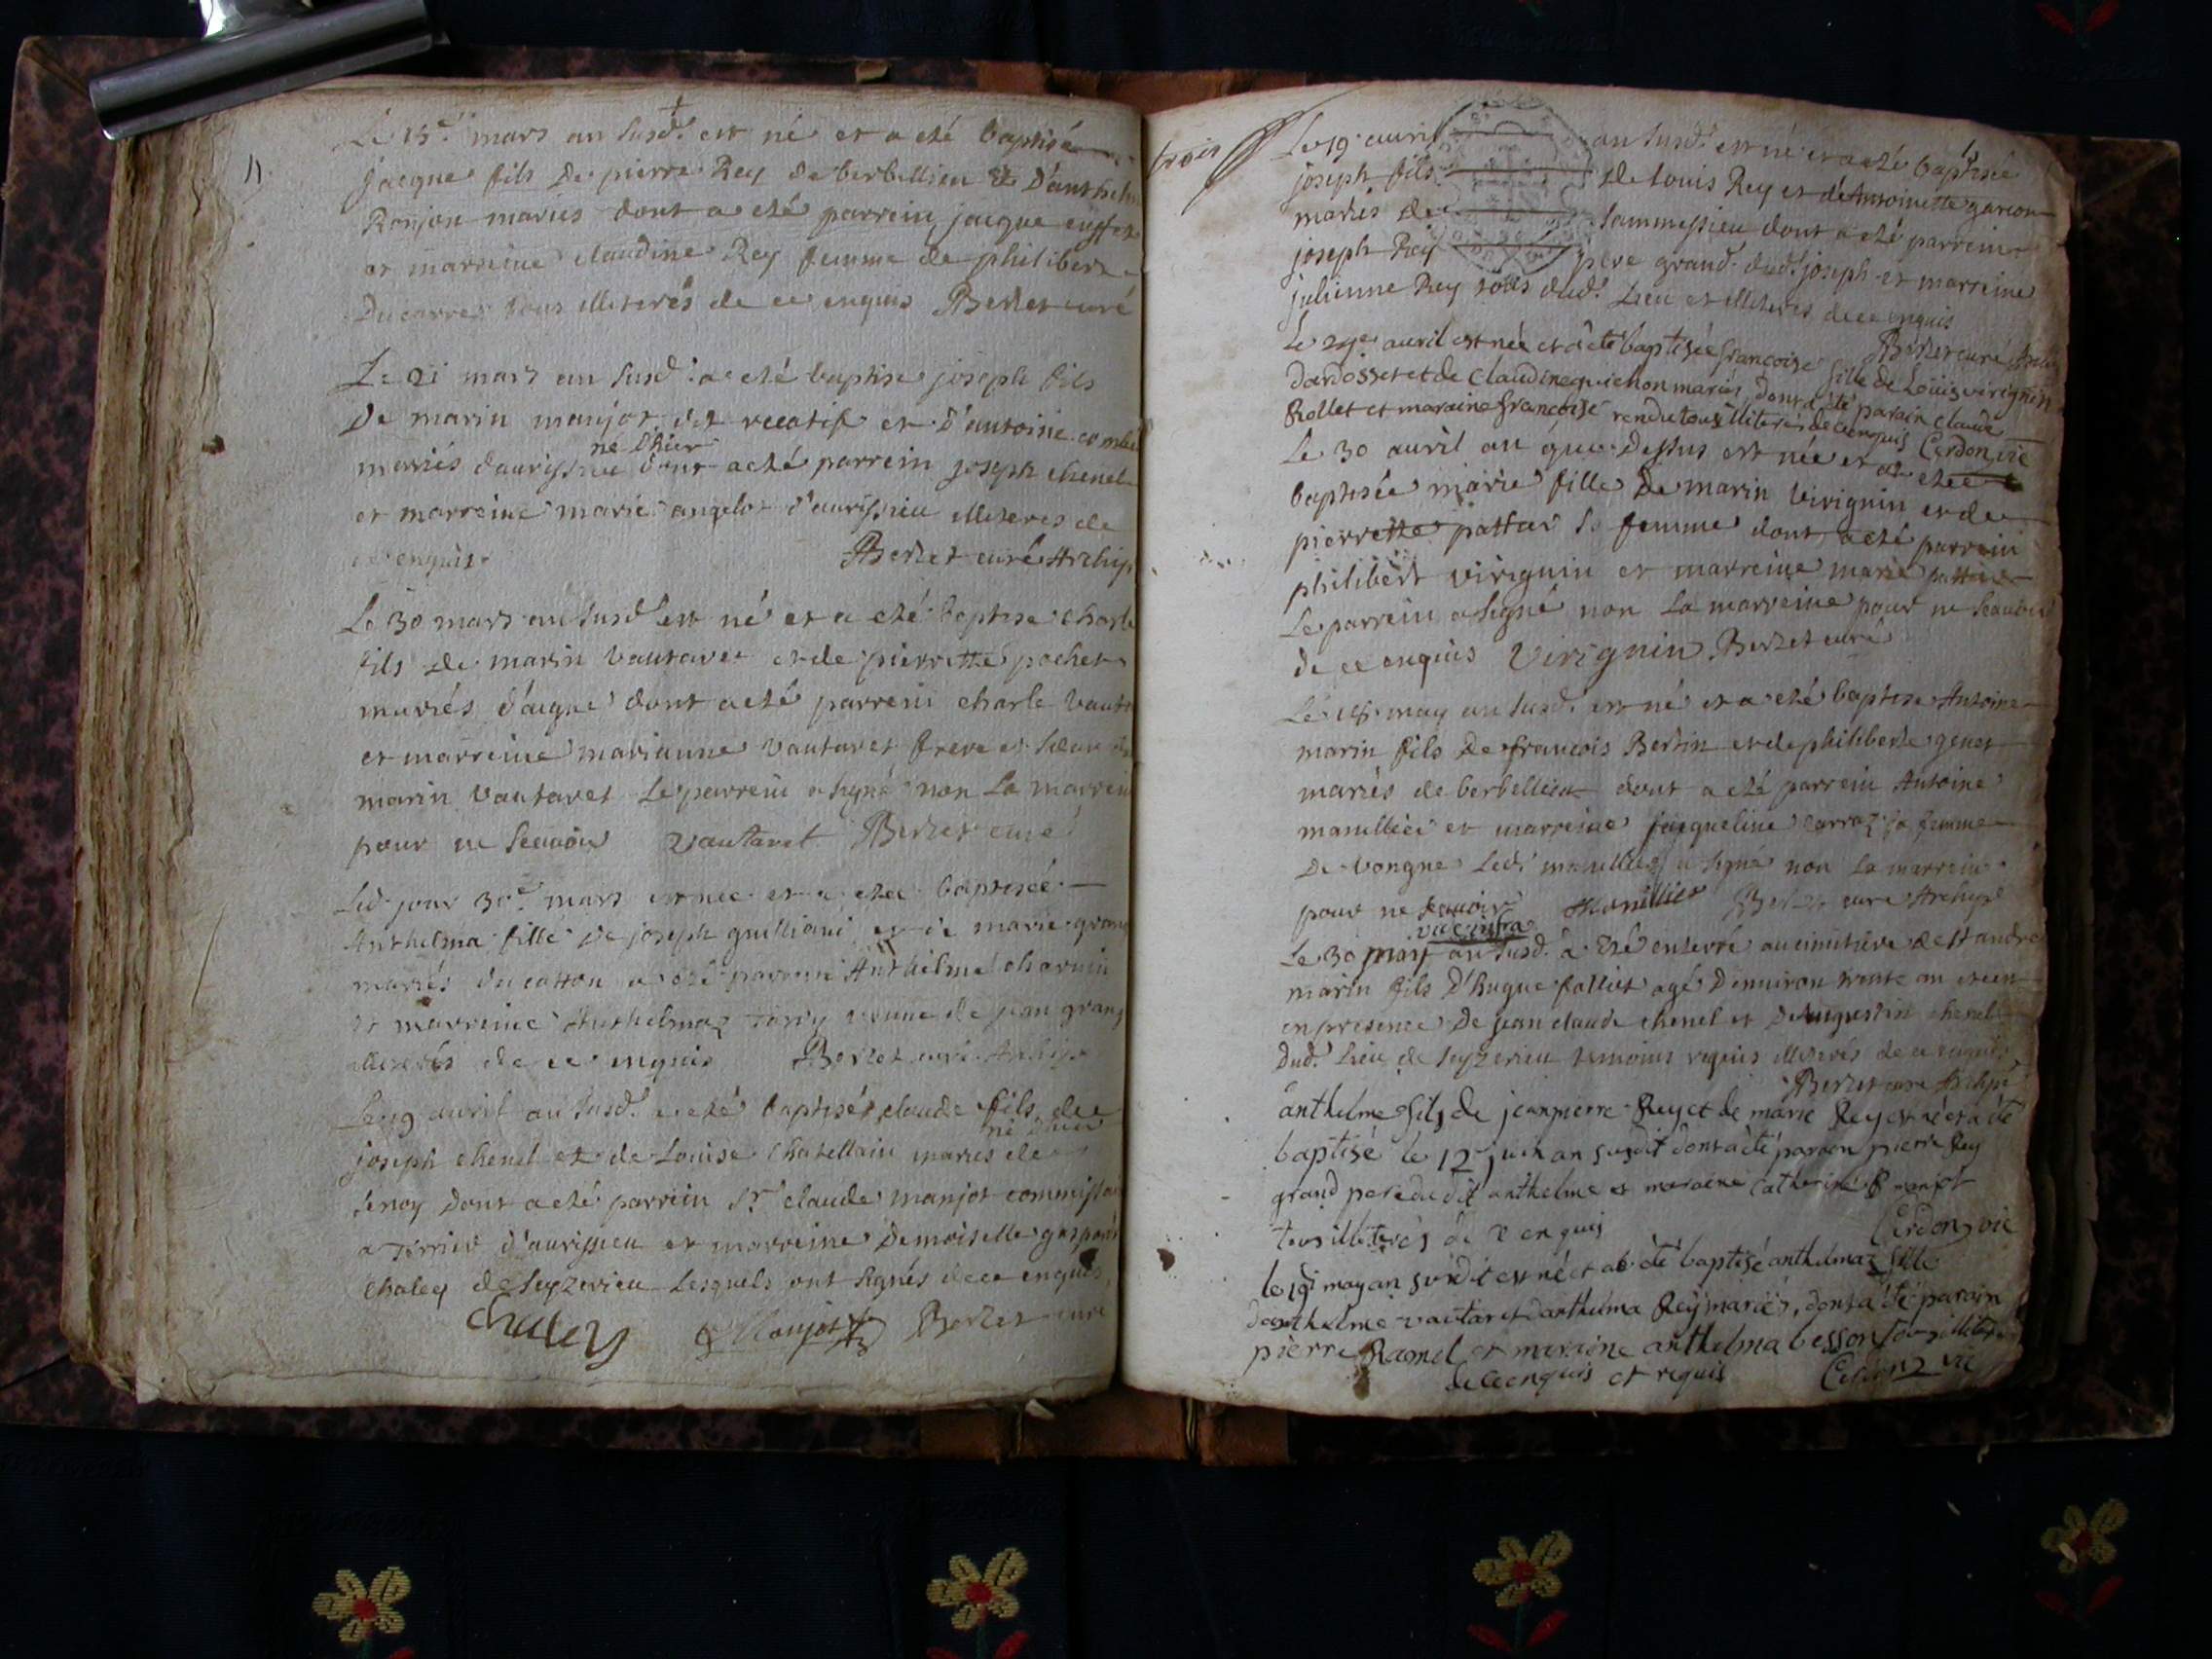 11
Le 15e mars an susd. est né et a eté baptisé
jacque fils de pierre Rey de berbellieu et d'anthelm
Ronjon mariés dont a eté parrein jacque
et marreine claudine Rey femme de philibert
Ducarre tous illiterés de ce enquis Berzet curé
Le 21 mars an susd. a eté baptisé joseph fils
De marin manjot dit et d'antoine
né d'hier
mariés d'aurissieu dont a eté parrein joseph chenel
et marreine marie angelot d'aurissieu illiteres de
ce enquis Berzet curé Archip
Le 30 mars an susd est né et a eté baptisé charle
fils de marin vautaret et de pierrette pochet
mariés d'aigne dont a eté parrein charle vauta
et marreine marianne vautaret frere et soeur
marin vautaret Le parrein a signé non La marrein
pour ne scavoir Vautaret Berzet curé
Led. jour 30e mars est nee et a etee baptisée
Anthelma fille de joseph guilliand et de marie grang
mariés du catton a eté parrein Anthelme charvin
et marreine Anthelmaz veuve de jean grang
illiterés de ce enquis Berzet curé Archip
Le 19 avril an susd. a eté baptisé claude fils de
né d'hier
joseph chenel et de Louise Chatellain mariés de
senoy dont a eté parrein Sr. claude manjot commissai
a Terrier d'aurissieu et marreine Demoiselle gaspard
Chaley de seyzerieu Lesquels ont signés de ce enquis
Chaley C Manjot Berzet curé
trois
Le 19 avril an susd. est né et a eté baptisé
joseph fils de Louis Rey et d'Antoinette garcon
mariés de sammessieu dont a eté parrein
joseph Rey pere grand dud. joseph et marreine
julienne Rey tous dud. Lieu et illiteres de ce enquis
Berzet curé Archip
Le 29e avril est née et a eté baptisée francoise fille de Loüis virignin
dardosset et de Claudine guichon mariés, dont a eté parain claude
Rollet et maraine francoise rendu tous illiterés de ce enquis Cerdon vic
Le 30 avril an que Dessus est née et a etee
baptisée marie fille De marin Virignin et de
pierrette pattar sa femme dont a eté parrein
philibert virignin et marreine marie pattar
Le parrein a signé non La marreine pour ne scavoir
de ce enquis Virignin Berzet curé
Le may an susd. est né et a eté baptisé Antoine
marin fils De francois Bertin et de philiberte genet
mariés de berbellieu dont a eté parrein Antoine
manillier et marreine jacqueline carraz sa femme
De vongne Ledt. manillier a signé non La marreine
pour ne scavoir Manillier Berzet curé Archip
vide infra
Le 30 may an susd. a eté enterré au cimitiere de st andré
marin fils D'hugue folliet agé D'environ trente an et
en presence De jean claude chenel et D'Augustin chenel
Dud. Lieu de seyzerieu temoins requis illiterés de ce enquis
Berzet curé Archip
anthelme fils de jeanpierre Rey et de marie Rey est né et a été
baptisé le 12 juin an susdit dont a été parain pierre Rey
grand pere dudit anthelme et maraine catherine manjot
tous illiterés de ce enquis Cerdon vic
le 19 may an susdit est né et a été baptisé anthelmaz fille
danthelme vautaret danthelma Rey mariés, dont a été parain
pierre Ramel et maraine anthelma besson tous illiterés
de ce enquis et requis Cerdon vic